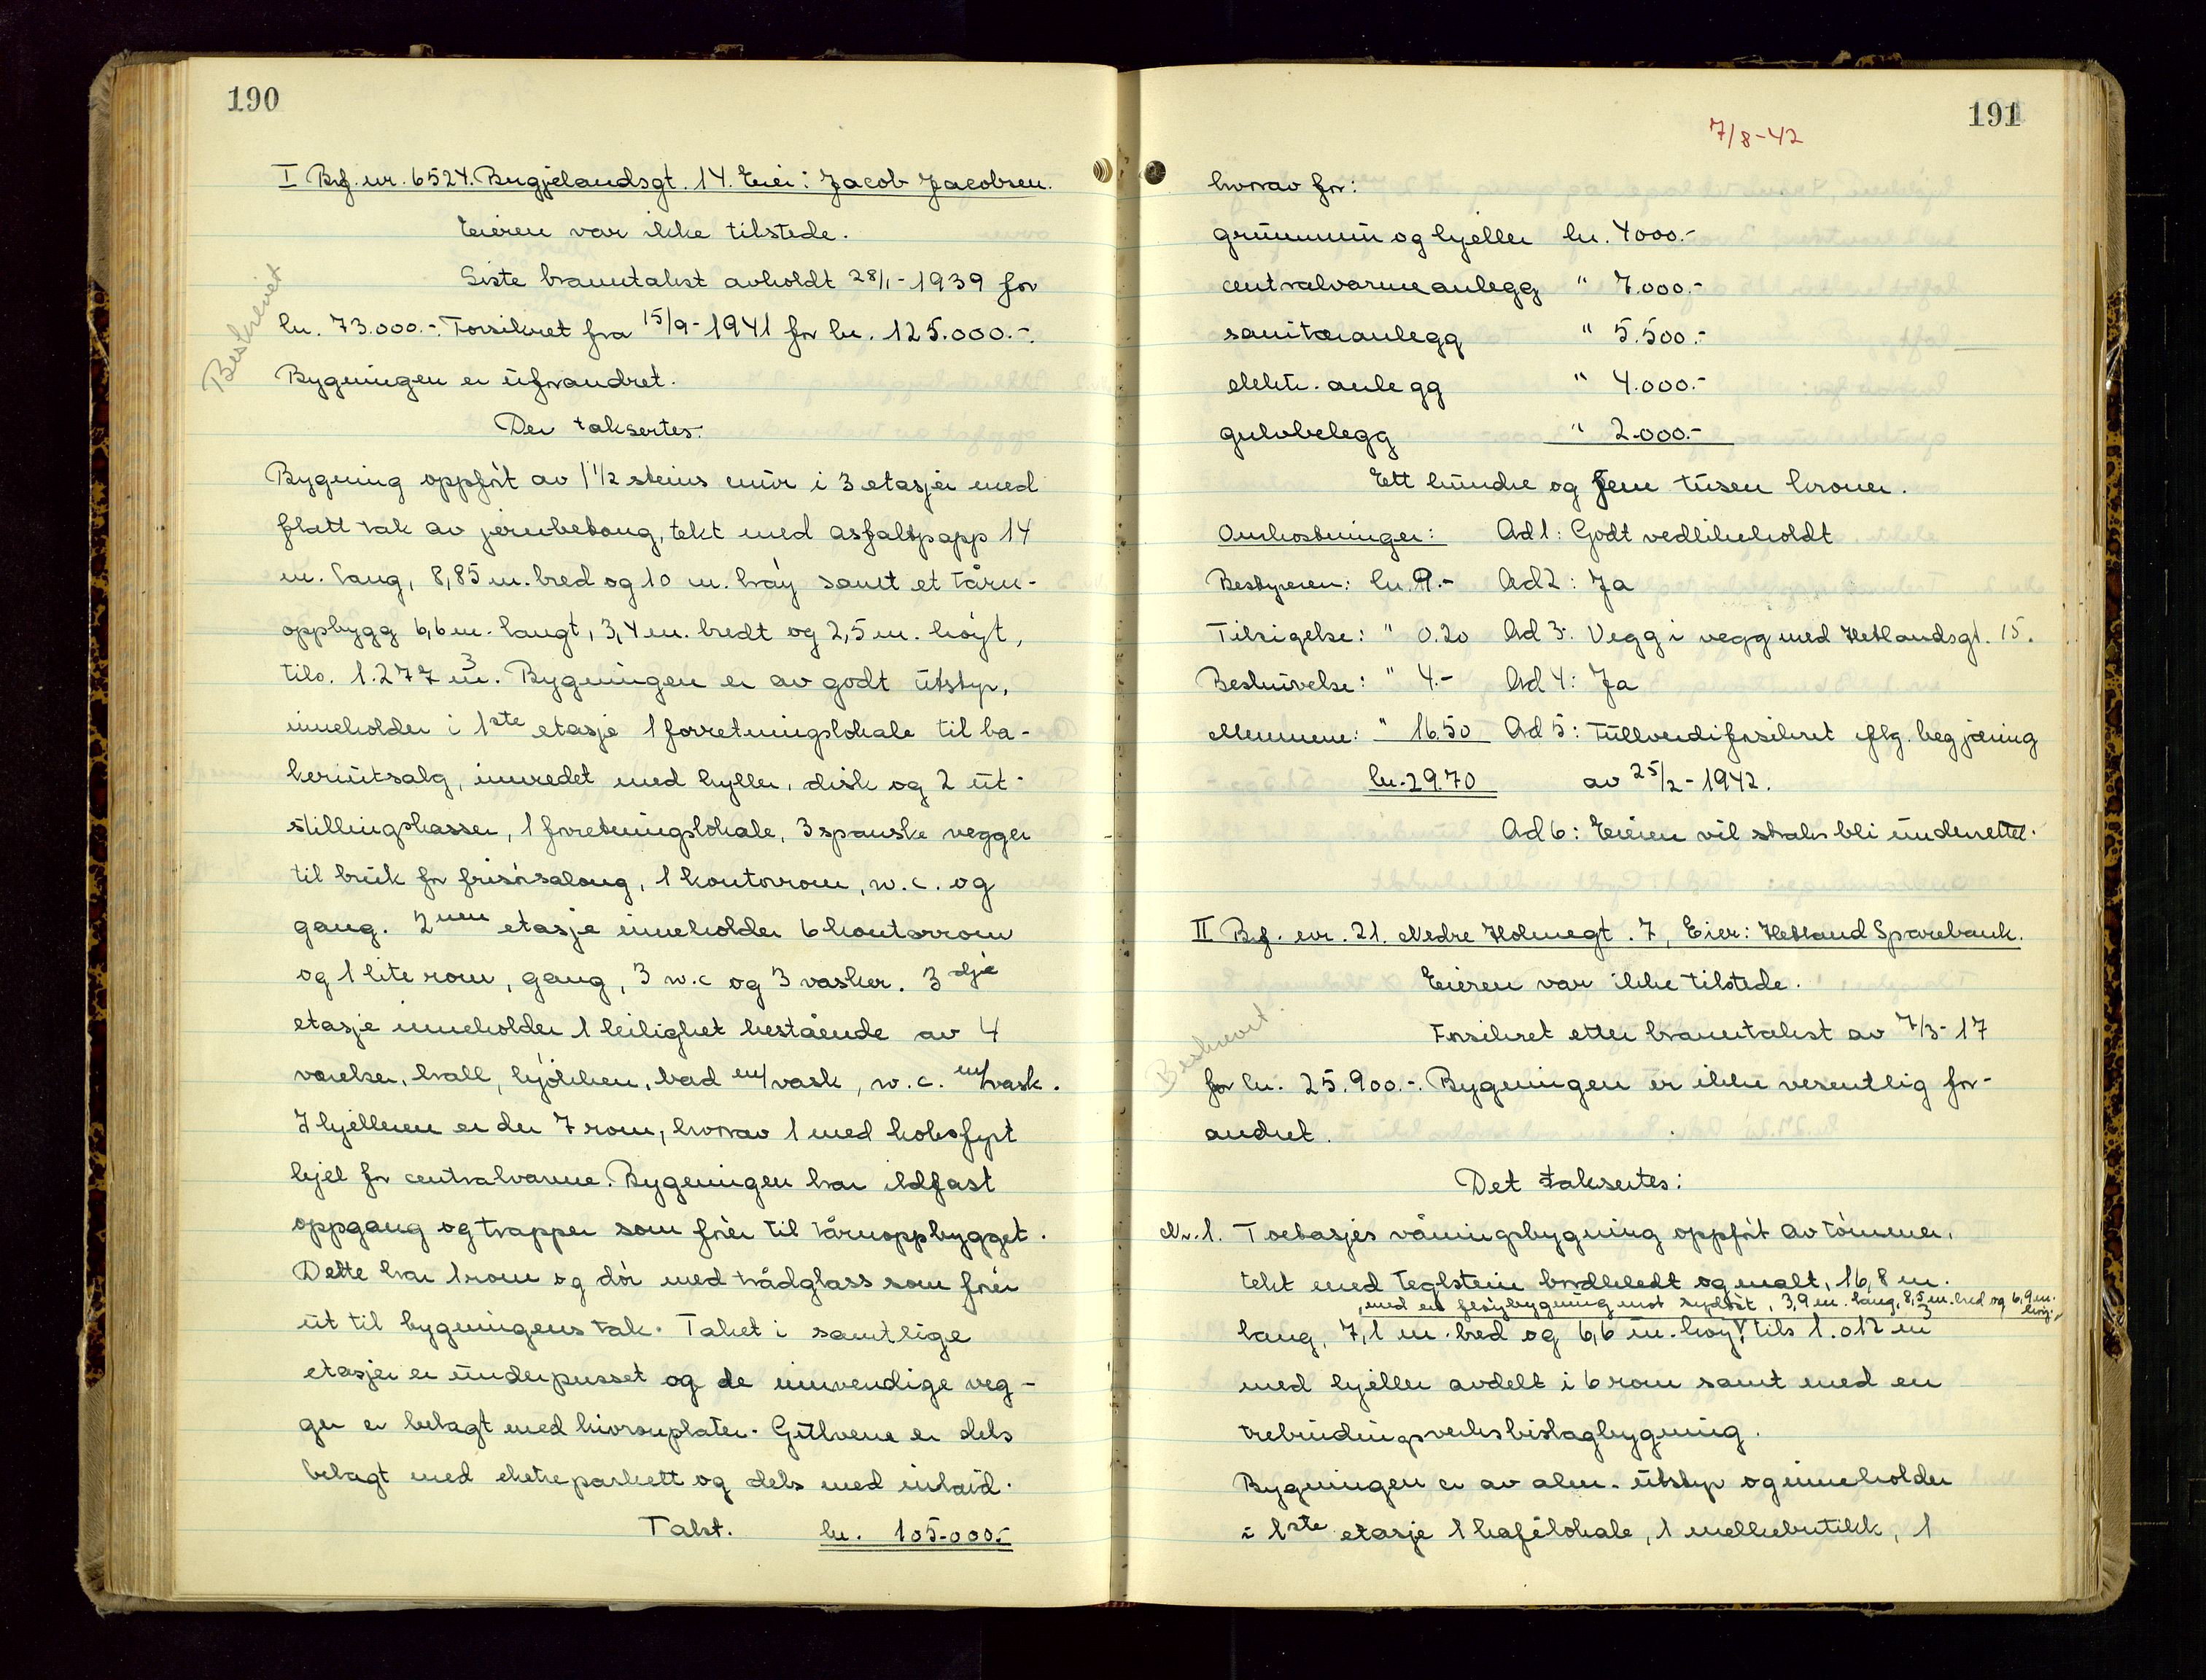 190
I Brf. nr. 6524. Bergjelandsgt. 14. Eier: Jacob Jacobsen.
Eieren var ikke tilstede.
Siste branntakst avholdt 28/1-1939 for
kr. 73.000.-. Forsikret fra 15/9-1941 for kr. 125.000.-.
Beskrevet
Bygningen er uforandret.
Der taksertes:
Bygning oppført av 1 1/2 steins mur i 3 etasjer med
flatt tak av jernbetong, tekt med asfaltpapp 14
m. lang, 8,85 m. bred og 10 m. høy samt et tårn-
oppbygg 6,6 m. langt, 3,4 m. bredt og 2,5 m. høyt,
tils. 1.277 m³. Bygningen er av godt utstyr,
inneholder i 1ste etasje 1 forretningslokale til ba-
kerutsalg, innredet med hyller, disk og 2 ut-
stillingskasser, 1 forretningslokale, 3 spanske vegger
til bruk for frisørsalong, 1 kontorrom, w.c. og
gang. 2nen etasje inneholder 6 kontorrom
og 1 lite rom, gang, 3 w.c og 3 vasker. 3dje
etasje inneholder 1 leilighet bestående av 4
værelser, hall, kjøkken, bad m/vask, w.c. m/vask.
I kjelleren er der 7 rom, hvorav 1 med koksfyrt
kjel for centralvarme. Bygningen har ildfast
oppgang og trapper som fører til tårnoppbygget.
Dette har 1 rom og dør med trådglass som fører
ut til bygningens tak. Taket i samtlige
etasjer er underpusset og de innvendige veg-
ger er belagt med huronplater. Gulvene er dels
belagt med eketreparkett og dels med inlaid.
Takst. kr. 105.000.-
191
7/8-42
hvorav for:
grunnmur og kjeller kr. 4000.-
centralvarmeanlegg " 7.000.-
sanitæranlegg " 5.500.-
elektr. anlegg " 4.000.-
gulvbelegg " 2.000.-
Ett hundre og fem tusen kroner.
Omkostninger: Ad 1: Godt vedlikeholdt
Bestyreren: kr. 9.- Ad 2: Ja
Tilsigelse: " 0.20 Ad 3: Vegg i vegg med Hetlandsgt. 15.
Beskrivelse: " 4.- Ad 4: Ja
Mennene: " 16.50 Ad 5: Fullverdiforsikret iflg. begjæring
kr. 29.70 av 25/2-1942.
Ad 6: Eieren vil straks bli underrettet.
II Brf. nr. 21. Nedre Holmegt. 7, Eier: Hetland Sparebank.
Eieren var ikke tilstede.
Forsikret etter branntakst av 7/3-17
Beskrevet.
for kr. 25.900.-. Bygningen er ikke vesentlig for-
andret.
Det taksertes:
Nr. 1. Toetasjes våningsbygning oppført av tømmer,
tekt med teglstein bordkledt og malt, 16,8 m.
, med en fløybygning mot sydøst, 3,9 m. lang, 8,5 m. bred og 6,9 m. høy,
lang, 7,1 m. bred og 6,6 m. høy, tils 1.012 m³
med kjeller avdelt i 6 rom samt med en
trebindingsverksbislagbygning.
Bygningen er av alm. utstyr og inneholder
i 1ste etasje 1 kafélokale, 1 melkebutikk, 1